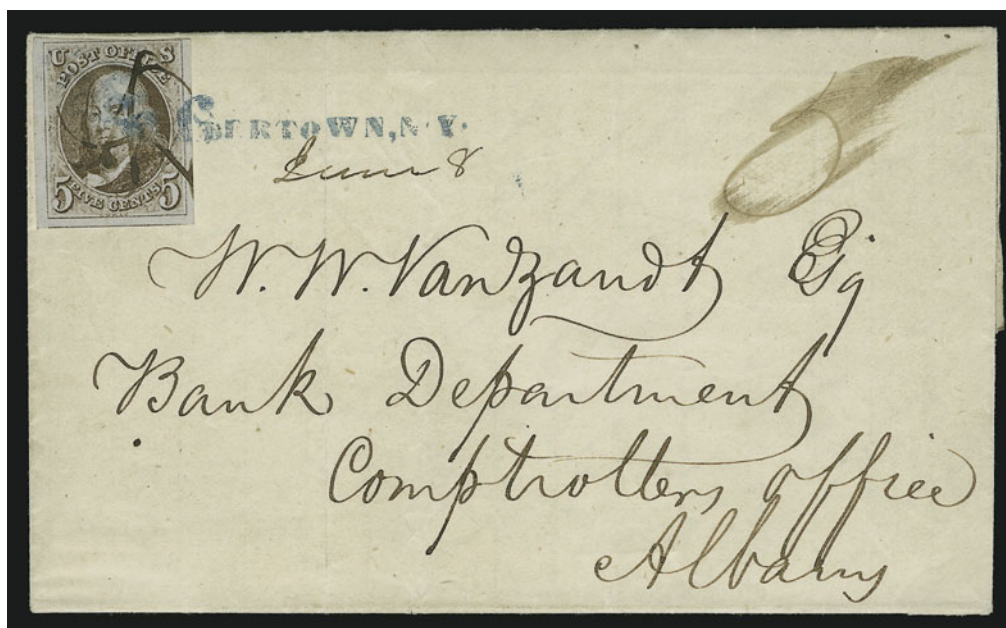 U S
POST OFFICE
FIVE CENTS
5 5
BERTOWN, N.Y.
June 8
W. W. Vandzandt Esq
Bank Department
Comptrollers office
Albany